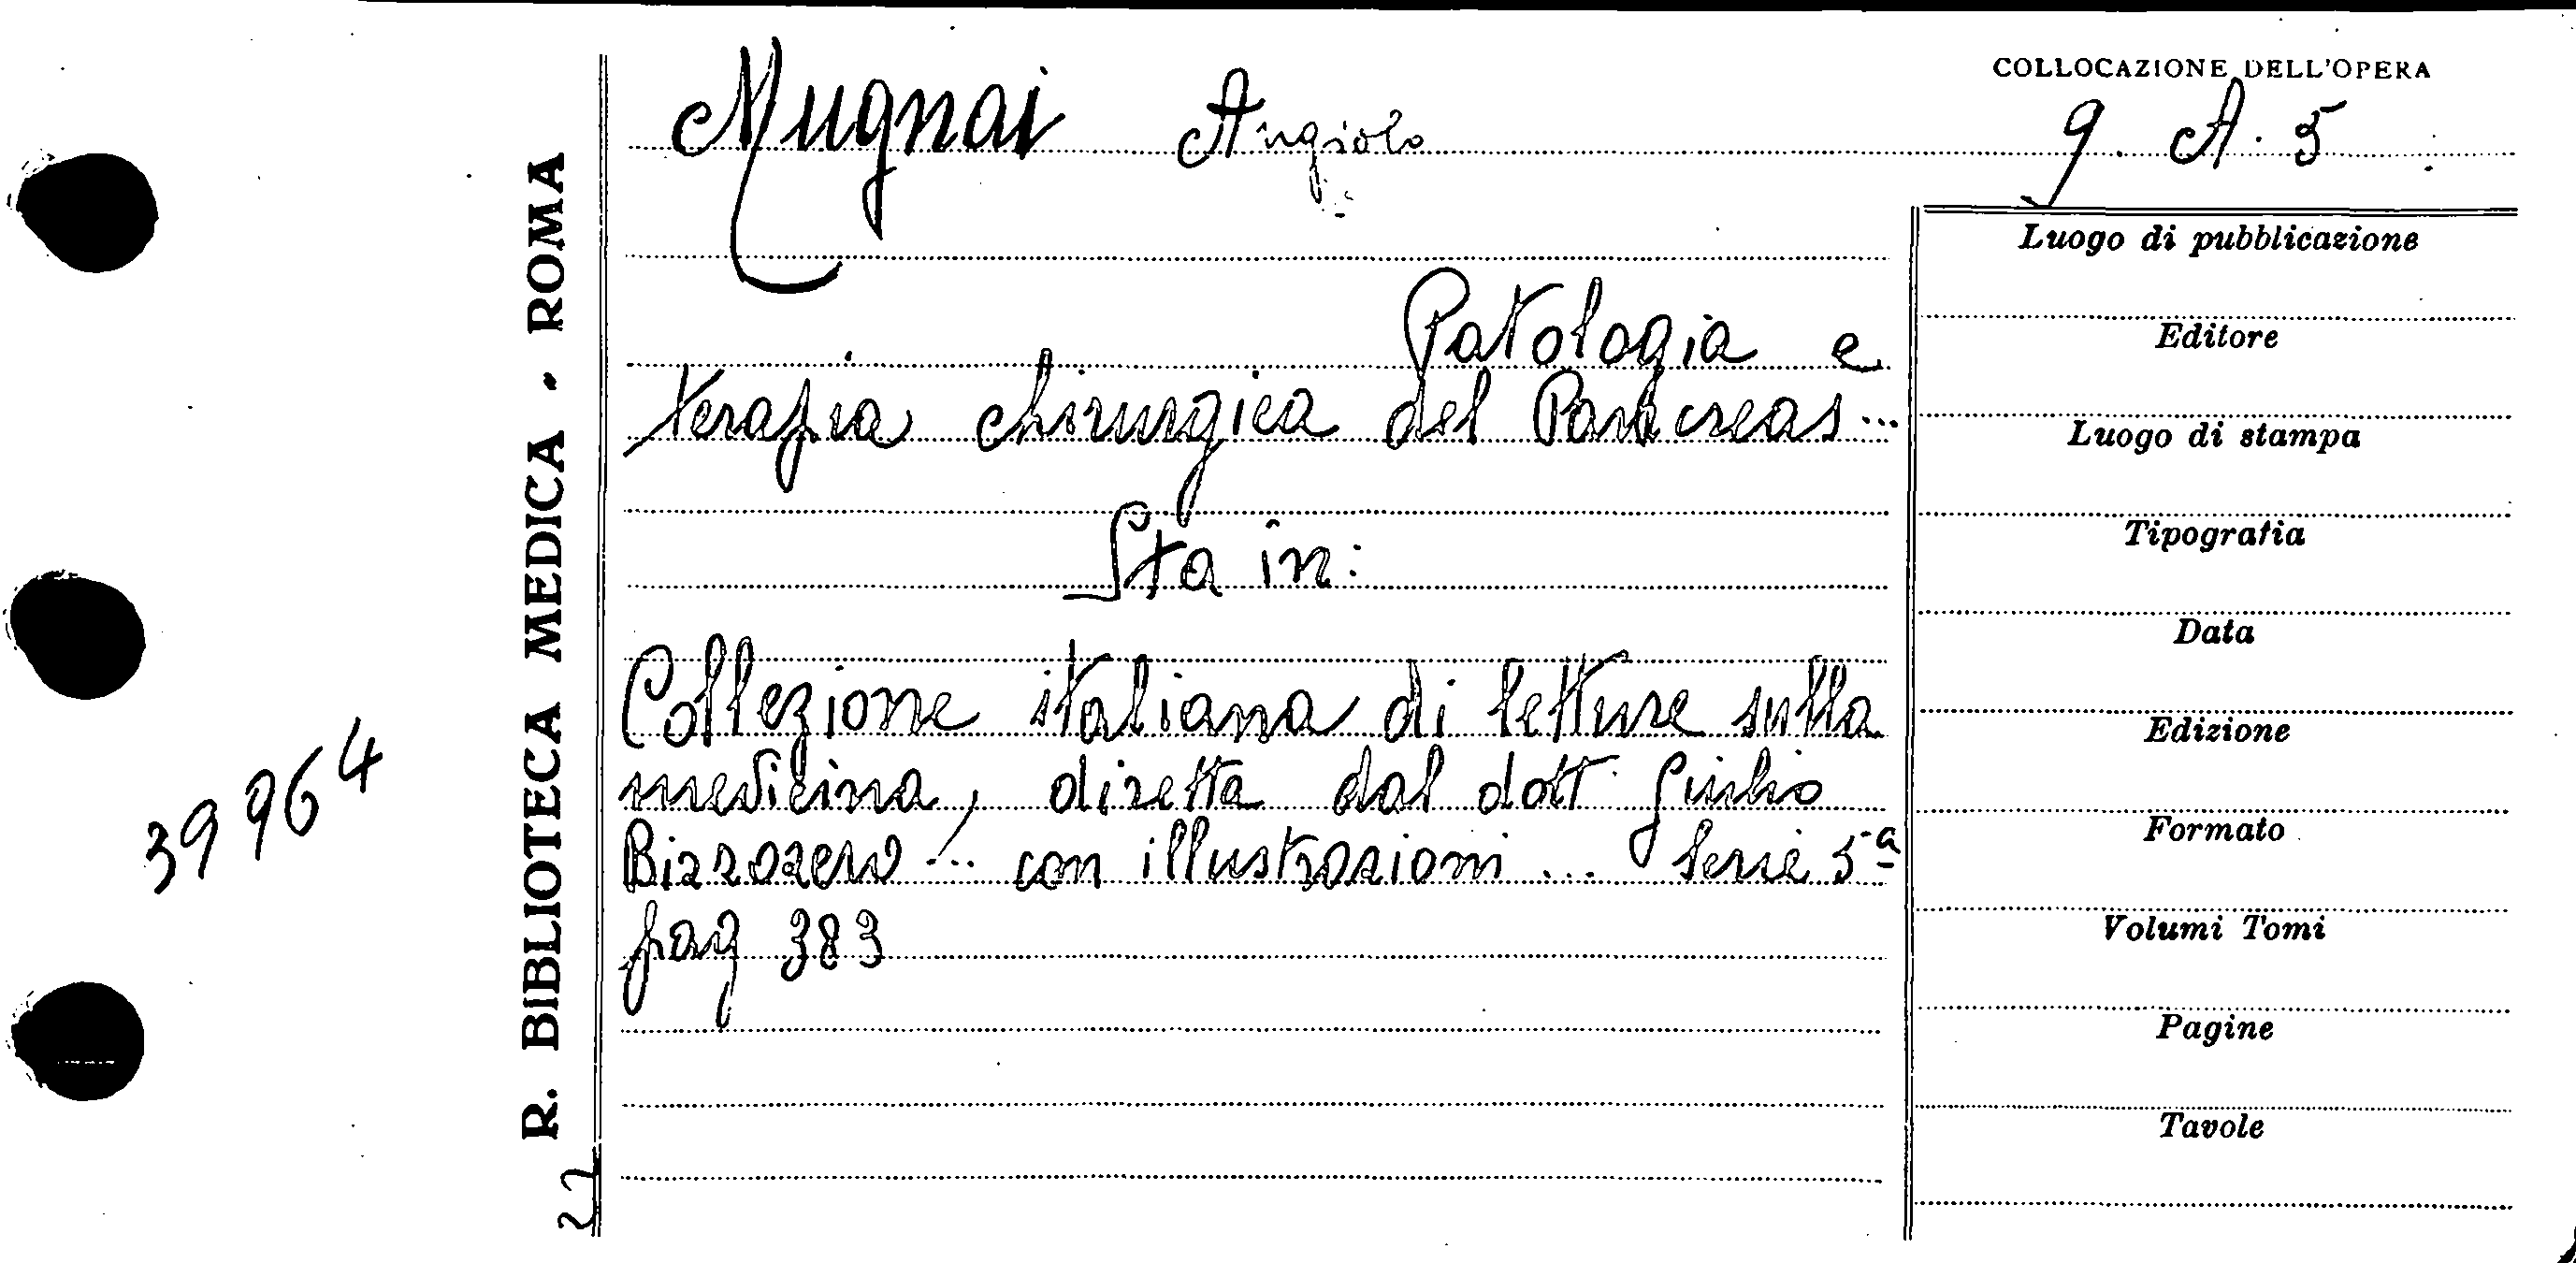 COLLOCAZIONE DELL'OPERA
Mugnai Angiolo
9. A. 5
Patologia e
terapia chirurgica del Pancreas...
Sta in:
Collezione italiana di letture sulla
medicina, diretta dal dott Giulio
Bizzozero ... con illustrazioni ... Serie 5ª
pag 383
Luogo di pubblicazione
Editore
Luogo di stampa
Tipografia
Data
Edizione
Formato
Volumi Tomi
Pagine
Tavole
R. BIBLIOTECA MEDICA - ROMA
39964